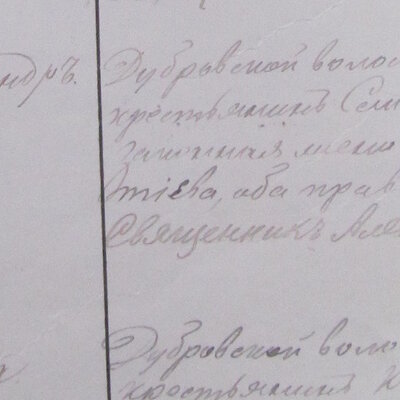 ндръ.
Дубровской воло
крестьянинъ Сем
законная жена
тiева, оба прав
Священникъ Але
Дубровской воло
крестьянинъ К